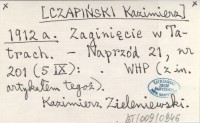 [CZAPIŃSKI Kazimierz]
1912 a. Zaginięcie w Ta-
trach. - Naprzód 21, nr
201 (5 IX): . WHP (z in.
artykułem tegoż).
Kazimierz Zieleniewski.
AT/00910/846